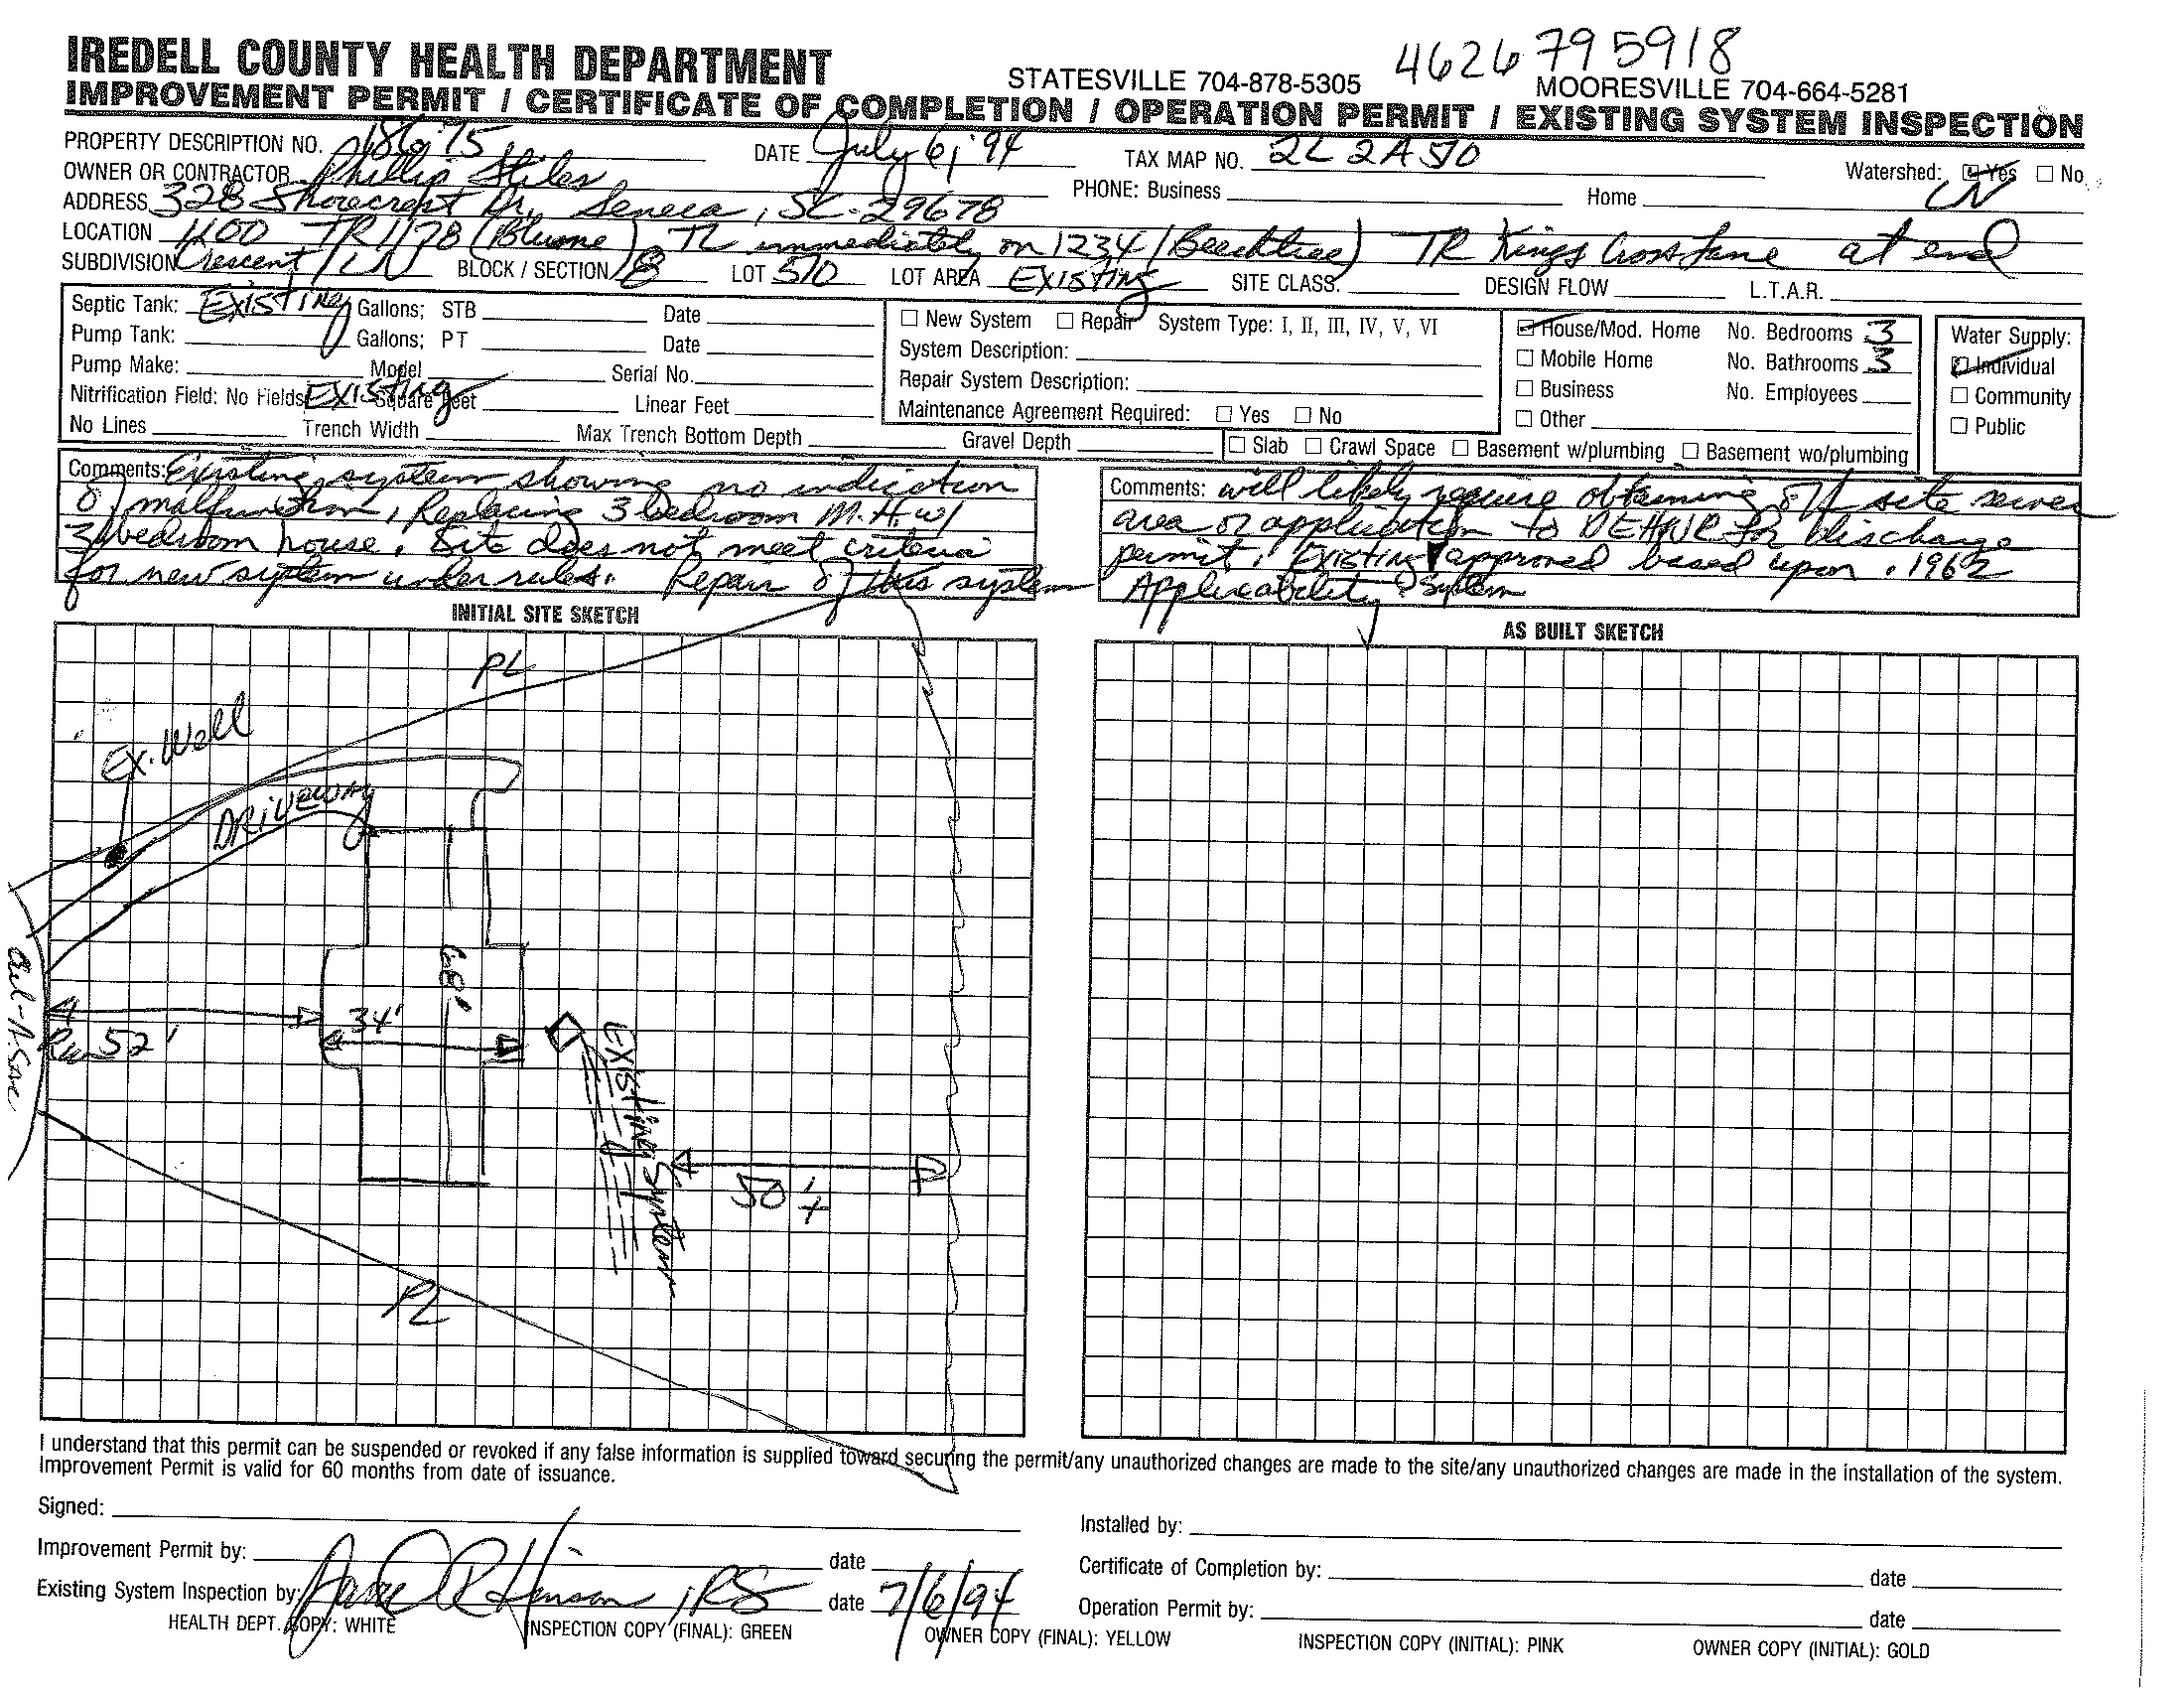 IREDELL COUNTY HEALTH DEPARTMENT STATESVILLE 704-878-5305 4626795918 MOORESVILLE 704-664-5281
IMPROVEMENT PERMIT / CERTIFICATE OF COMPLETION / OPERATION PERMIT / EXISTING SYSTEM INSPECTION
PROPERTY DESCRIPTION NO. 18675 DATE July 6, '94 TAX MAP NO. 2L 2A 510 Watershed: Yes No
OWNER OR CONTRACTOR Phillip Stiles PHONE: Business Home LN
ADDRESS 328 Shorecrest Dr. Seneca, SC. 29678
LOCATION 1100 TR 1178 (Blume) TL immediately on 1234 (Beechtree) TR Kings Cross Lane at end
SUBDIVISION Crescent / LN BLOCK / SECTION 8 LOT 510 LOT AREA Existing SITE CLASS. DESIGN FLOW L.T.A.R.
Septic Tank: Existing Gallons; STB Date
Pump Tank: Gallons; PT Date
Pump Make: Model Serial No.
Nitrification Field: No Fields Existing Square Feet Linear Feet
No Lines Trench Width Max Trench Bottom Depth Gravel Depth
New System Repair System Type: I, II, III, IV, V, VI
System Description:
Repair System Description:
Maintenance Agreement Required: Yes No
House/Mod. Home No. Bedrooms 3
Mobile Home No. Bathrooms 3
Business No. Employees
Other
Slab Crawl Space Basement w/plumbing Basement wo/plumbing
Water Supply:
Individual
Community
Public
Comments: Existing system showing no indication
of malfunction, Replacing 3 bedroom M.H. w/
3 bedroom house. Site does not meet criteria
for new system under rules. Repair of this system
Comments: will likely require obtaining off site sewer
area or application to DEHNR for discharge
permit. Existing approved based upon .1962
Applicability System
INITIAL SITE SKETCH
AS BUILT SKETCH
PL
Ex. Well
DRIVEWAY
68'
34'
52'
Existing System
50'+
PL
I understand that this permit can be suspended or revoked if any false information is supplied toward securing the permit/any unauthorized changes are made to the site/any unauthorized changes are made in the installation of the system.
Improvement Permit is valid for 60 months from date of issuance.
Signed: Installed by:
Improvement Permit by: date Certificate of Completion by: date
Existing System Inspection by: R Hinson, RS date 7/6/94 Operation Permit by: date
HEALTH DEPT. COPY: WHITE INSPECTION COPY (FINAL): GREEN OWNER COPY (FINAL): YELLOW INSPECTION COPY (INITIAL): PINK OWNER COPY (INITIAL): GOLD